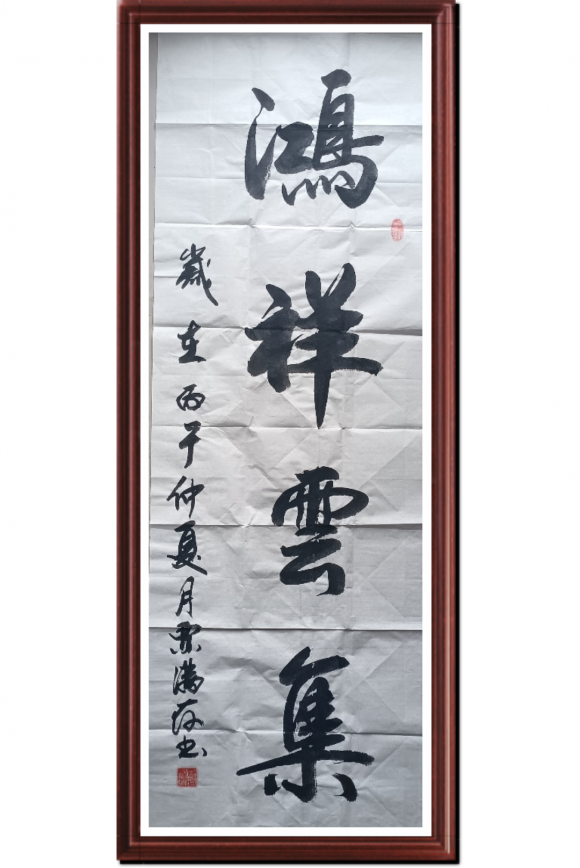 鴻祥雲集
歲在丙午仲夏月滿書